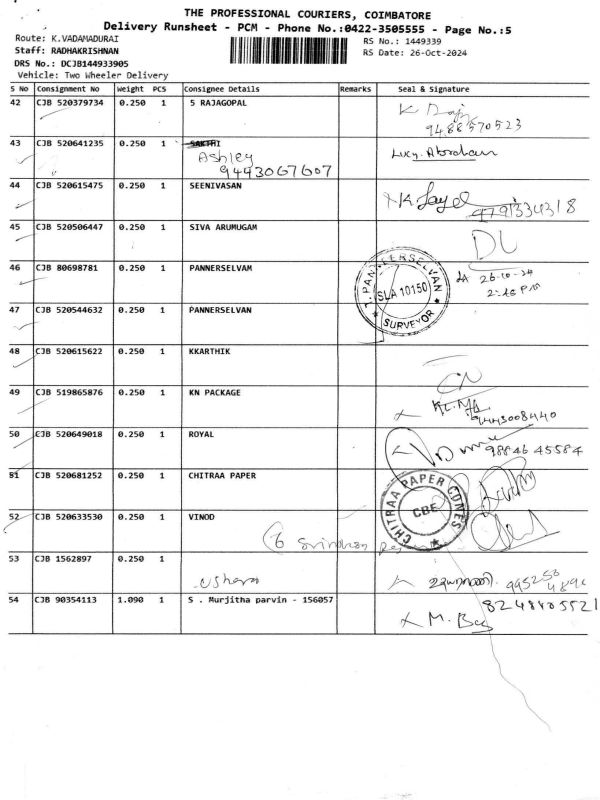 THE PROFESSIONAL COURIERS, COIMBATORE
Delivery Runsheet - PCM - Phone No.:0422-3505555 - Page No.:5
Route: K.VADAMADURAI
RS No.: 1449339
Staff: RADHAKRISHNAN
RS Date: 26-Oct-2024
DRS No.: DCJB144933905
Vehicle: Two Wheeler Delivery
S No Consignment No Weight PCS Consignee Details Remarks Seal & Signature
42 CJB 520379734 0.250 1 S RAJAGOPAL
9488570523
43 CJB 520641235 0.250 1 SAKTHI
Ashley
9443067607
44 CJB 520615475 0.250 1 SEENIVASAN
9791334318
45 CJB 520506447 0.250 1 SIVA ARUMUGAM
46 CJB 80698781 0.250 1 PANNERSELVAM
T. PANNEERSELVAN
SLA 10150
SURVEYOR
26-10-24
2:46 PM
47 CJB 520544632 0.250 1 PANNERSELVAN
48 CJB 520615622 0.250 1 KKARTHIK
49 CJB 519865876 0.250 1 KN PACKAGE
9443008440
50 CJB 520649018 0.250 1 ROYAL
98846 45584
51 CJB 520681252 0.250 1 CHITRAA PAPER
CHITRAA PAPER CONES
CBE
52 CJB 520633530 0.250 1 VINOD
53 CJB 1562897 0.250 1
54 CJB 90354113 1.090 1 S . Murjitha parvin - 156057
8248405521